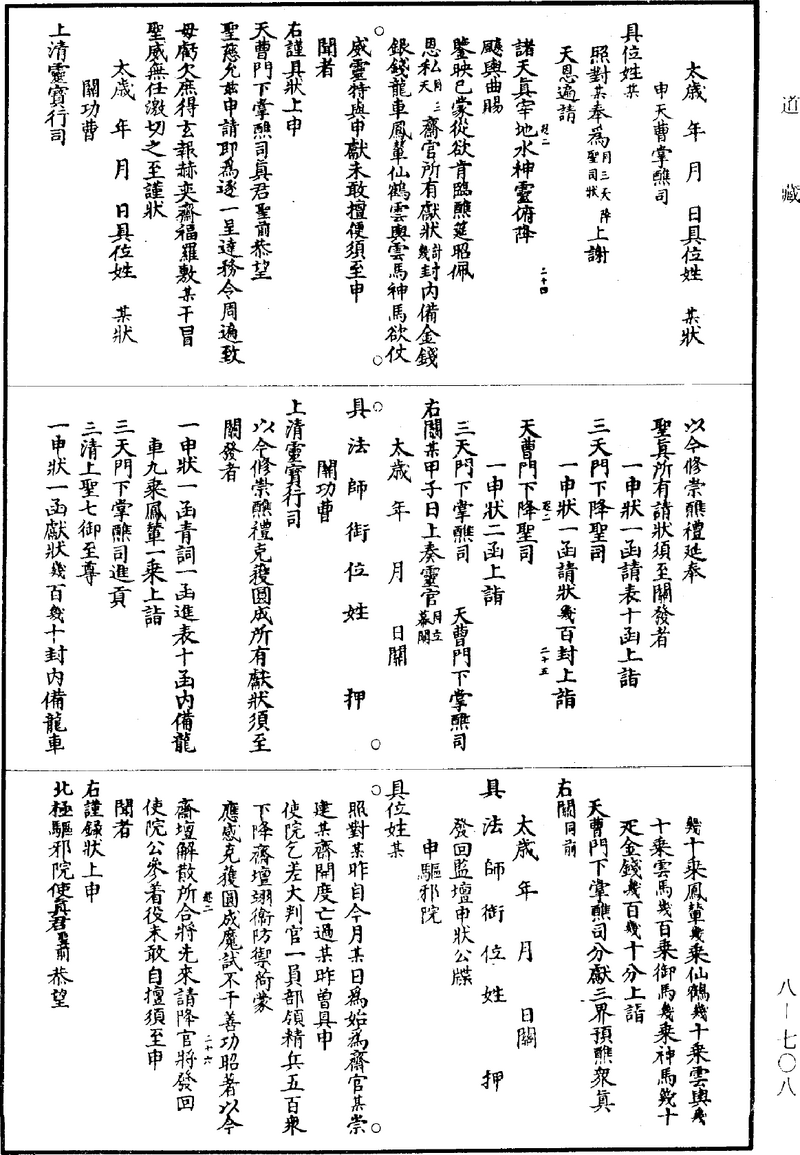 道藏
太歲　年　月　日具位姓　某狀
申天曹掌醮司
具位姓某
照對某奉爲月三天降聖司狀上謝
天恩遍請
諸天眞宰地水神靈俯降
飈輿曲賜
鑒映已蒙從欲肯臨醮筵昭佩
恩私天月三齋官所有獻狀計幾封內備金錢
銀錢龍車鳳輦仙鶴雲輿雲馬神馬欲仗
威靈特與申獻未敢擅便須至申
聞者
右謹具狀上申
天曹門下掌醮司眞君聖前恭望
聖慈允茲申請即爲逐一呈達務令周遍致
毋虧欠庶得玄報赫奕齋福羅敷某干冒
聖威無任激切之至謹狀
太歲　年　月　日具位姓　某狀
關功曹
上清靈寶行司
以今修崇醮禮延奉
聖眞所有請狀須至關發者
一申狀一函請表十函上詣
三天門下降聖司
一申狀一函請狀幾百封上詣
天曹門下降聖司
一申狀二函上詣
三天門下掌醮司　天曹門下掌醮司
右關某甲子日上奏靈官月立幕關
太歲　年　月　日關
具法師銜位姓　押
關功曹
上清靈寶行司
以今修崇醮禮克獲圓成所有獻狀須至
關發者
一申狀一函青詞一函進表十函內備龍
車九乘鳳輦一乘上詣
三天門下掌醮司進貢
三清上聖七御至尊
一申狀一函獻狀幾百幾十封內備龍車
幾十乘鳳輦幾乘仙鶴幾十乘雲輿幾
十乘雲馬幾百乘御馬幾乘神馬幾十
疋金錢幾百幾十分上詣
天曹門下掌醮司分獻三界預醮衆眞
右關同前
太歲　年　月　日關
具法師銜位姓　押
發回監壇申狀公牒
申驅邪院
具位姓某
照對某昨自今月某日爲始爲齋官某崇
建某齋開度亡過某昨曾具申
使院乞差大判官一員部領精兵五百衆
下降齋壇翊衛防禦荷蒙
應感克獲圓成魔試不干善功昭著以今
齋壇解散所合將先來請降官將發回
使院公參着役未敢自擅須至申
聞者
右謹錄狀上申
北極驅邪院使眞君聖前恭望
二十四
二十五
二十六
八—七〇八